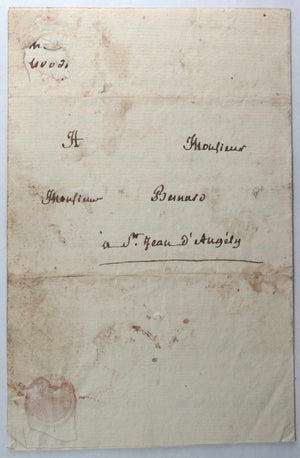 A Monsieur
Monsieur Bernard
à St. Jean d'Angély